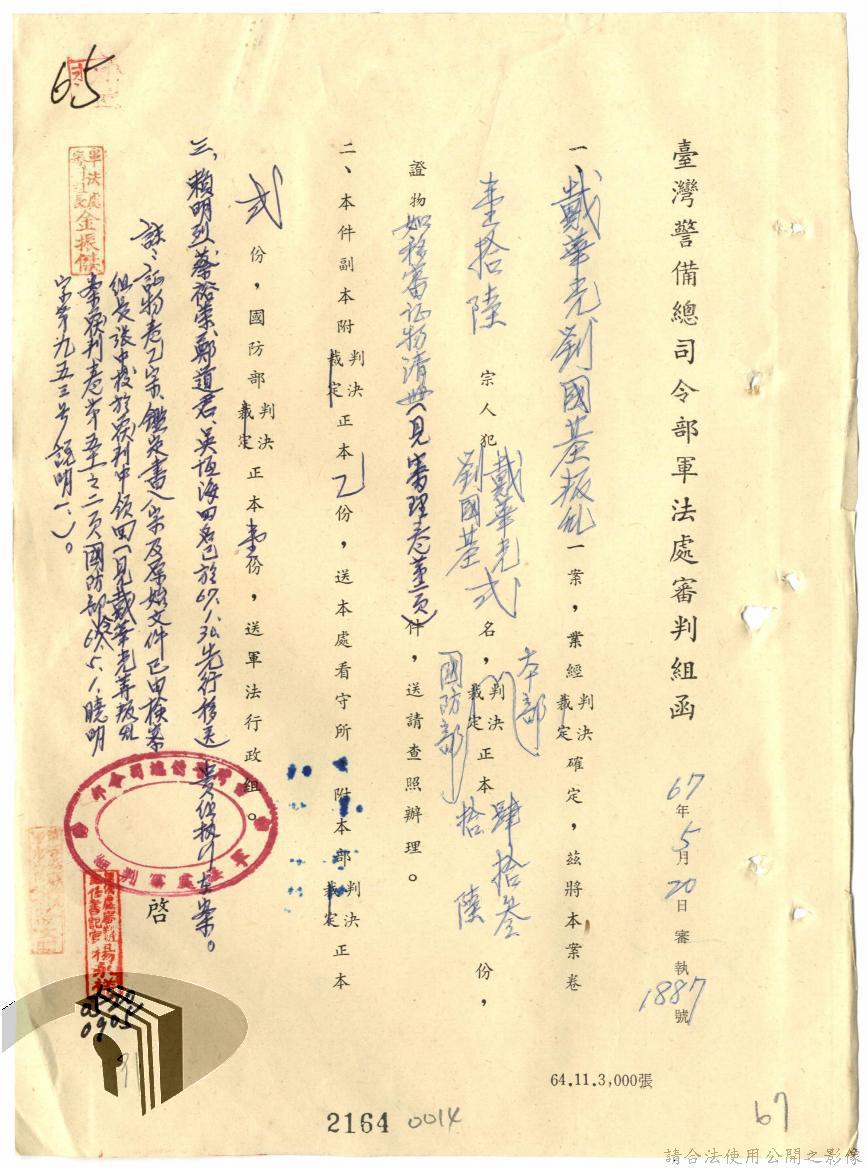 臺灣警備總司令部軍法處審判組函
67年5月20日審執1887號
一、戴華光劉國基叛亂一案，業經判決裁定確定，茲將本案卷
壹拾陸宗人犯戴華光劉國基弍名，本部國防部判決裁定正本肆拾叁拾陸份，
證物如移審证物清冊（見審理卷 頁）件，送請查照辦理。
二、本件副本附判決裁定正本乙份，送本處看守所，附本部判決裁定正本
弍份，國防部判決裁定正本壹份，送軍法行政組。
三、賴明烈、蔡裕荣、鄭道君、吳恆海四名已於67.1.30.先行移送 貴组执行在案。
註：証物卷乙宗、鑑定書 宗及原始文件已由檢案
組長張中 於覆判中領回（見戴華光等叛乱
案覆判卷第五十之二頁國防部67.5.1.曉明
字第九五三号說明一、）。
啓
軍法處審判組長金振傑
65
64.11.3,000張
2164
0014
67
請合法使用公開之影像